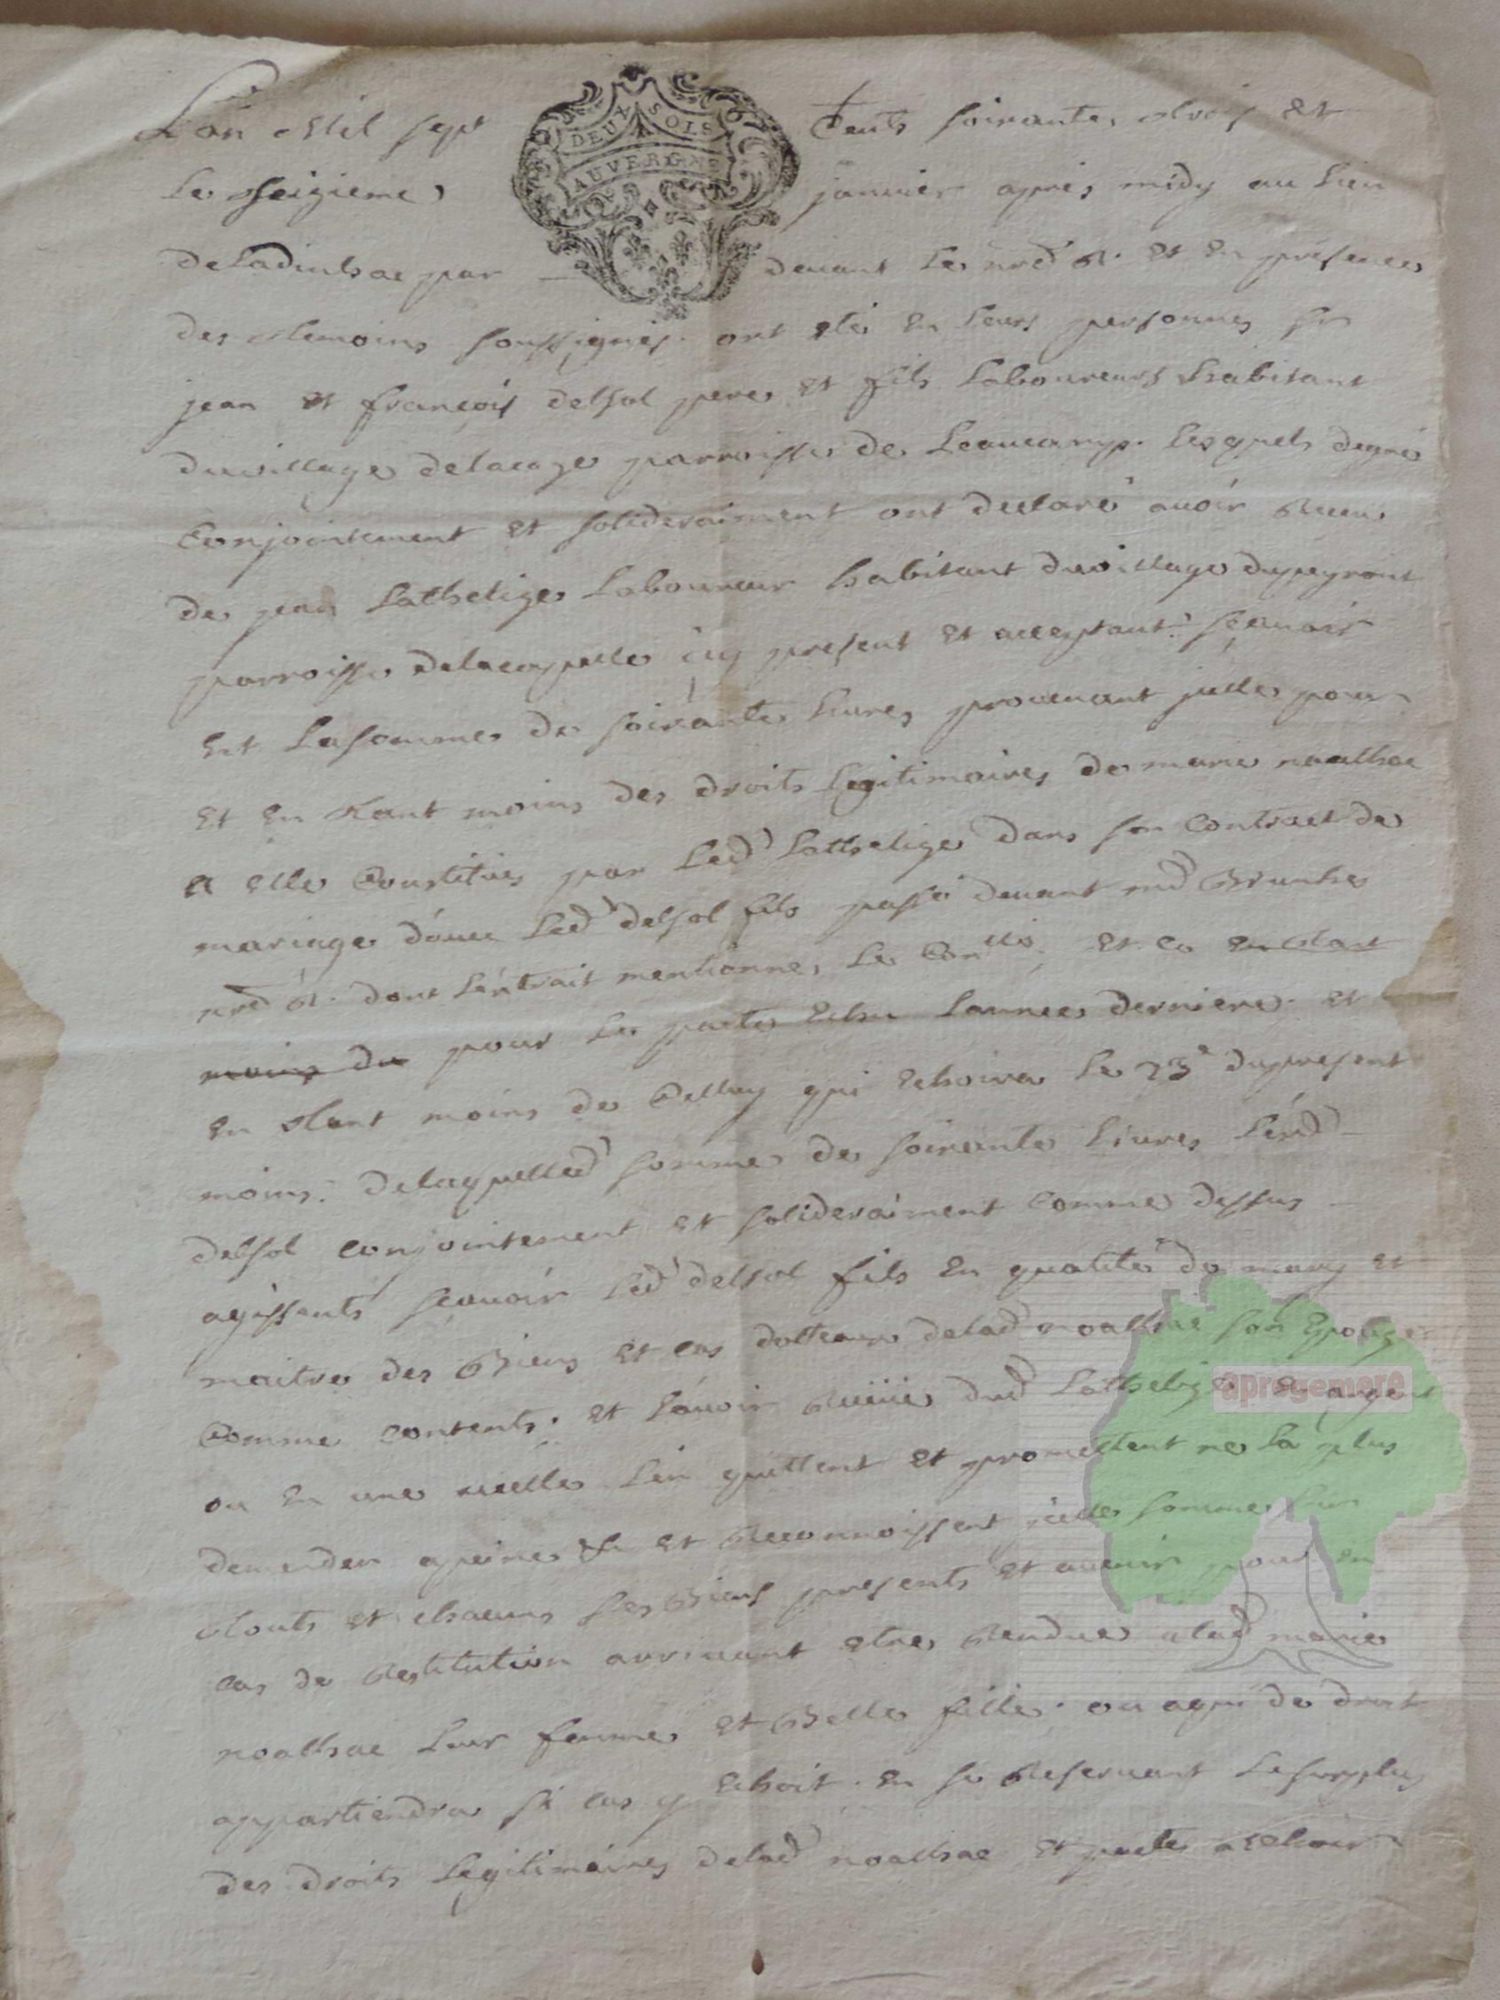 L'an Mil sept Cents soixante, trois et
DEUX SOLS
AUVERGNE
Le seizieme janvier apres midy au Lieu
deLadinhac par devant Le nred R. et En presence
des temoins soussignés. ont eté En leurs personnes sr
jean et françois delsol pere et fils Laboureurs habitant
duvillage delacaze parroisse de Leaucamp. Lesquels degré
Conjointement et soliderairement ont declaré avoir Receu
de jean Lathelize Laboureur habitant duvillage dupeyrout
parroisse delacapelle icy present et acceptant. sçavoir
Est Lasomme de soixante Livres provenant pour
et En tant moins des droits Legitimaires de marie noalhac
a elle Constitués par Led Lathelize dans son Contract de
mariage d'avec Led delsol fils passé devant Md Brunhes
nred R. dont L'extrait mentionne, Le Conlle. et ce En tant
moins du pour Le pacte Echu Lannee derniere. et
En tant moins de Celluy qui Echoira le 23e dupresent
mois. delaquelled somme de soixante Livres Lesd
delsol conjointement et soliderairement Comme dessus
agissents sçavoir Led delsol fils En qualité de mary et
maitre des Biens et cas dotteaux delad noalhac son Epouze
Comme contents. et Lavoir Reçüe dud Lathelize En argent
apregemere
ou En une L'en quittent et promettent ne La plus
demender apeine &c et Reconnoissent icelle somme sur
touts et chacuns ses Biens presents et avenir pour En
cas de Restitution arrivant etre Rendue alad marie
noalhac Leur femme et Belle fille. ou aqui de droit
appartiendra si cas y Echoit. En se Reservant Lesurplus
des droits Legitimaires delad noalhac et pacte aEchoir